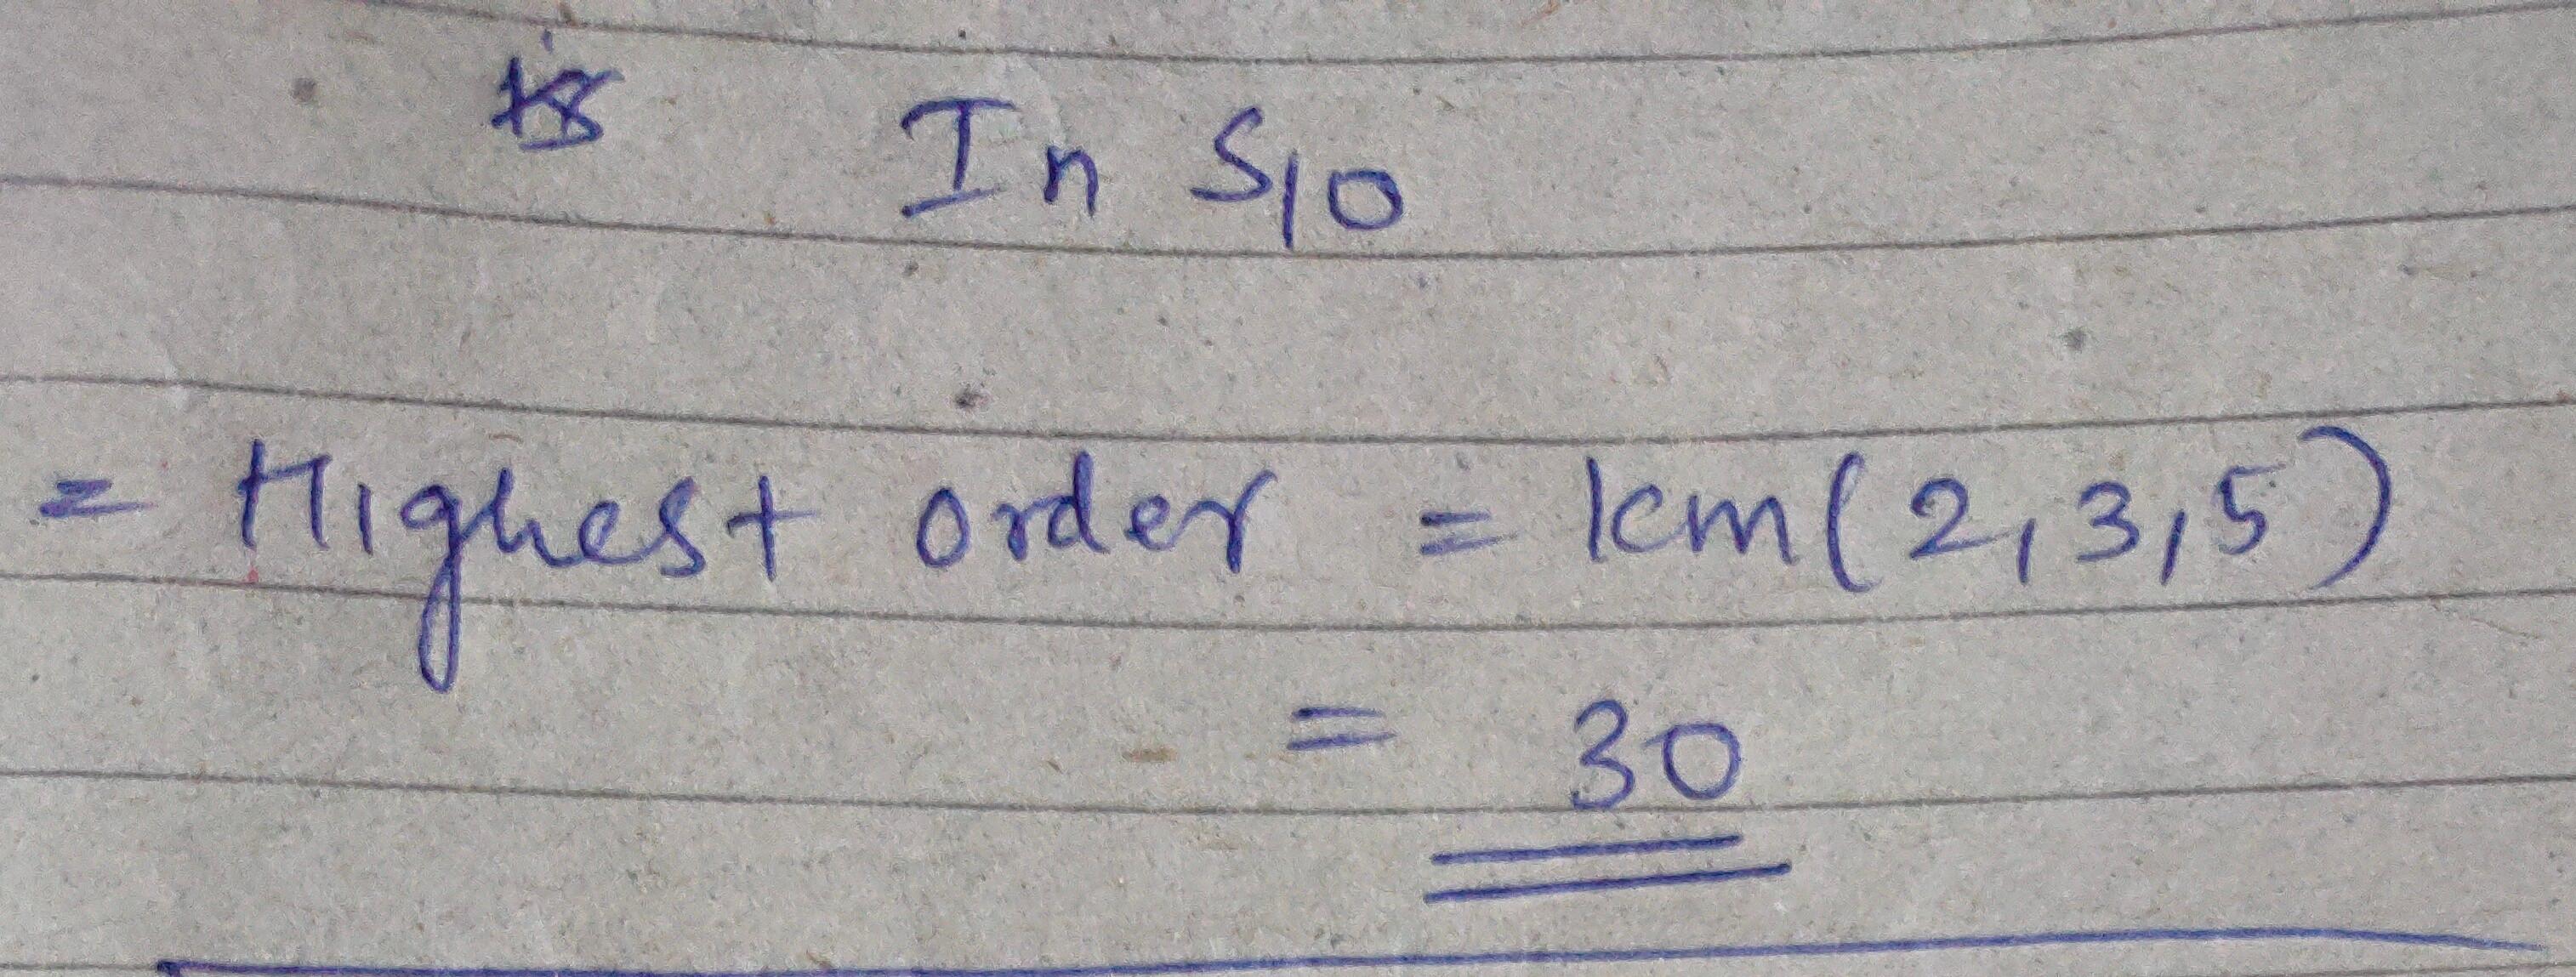 In S10
= Highest order = lcm(2,3,5)
= 30